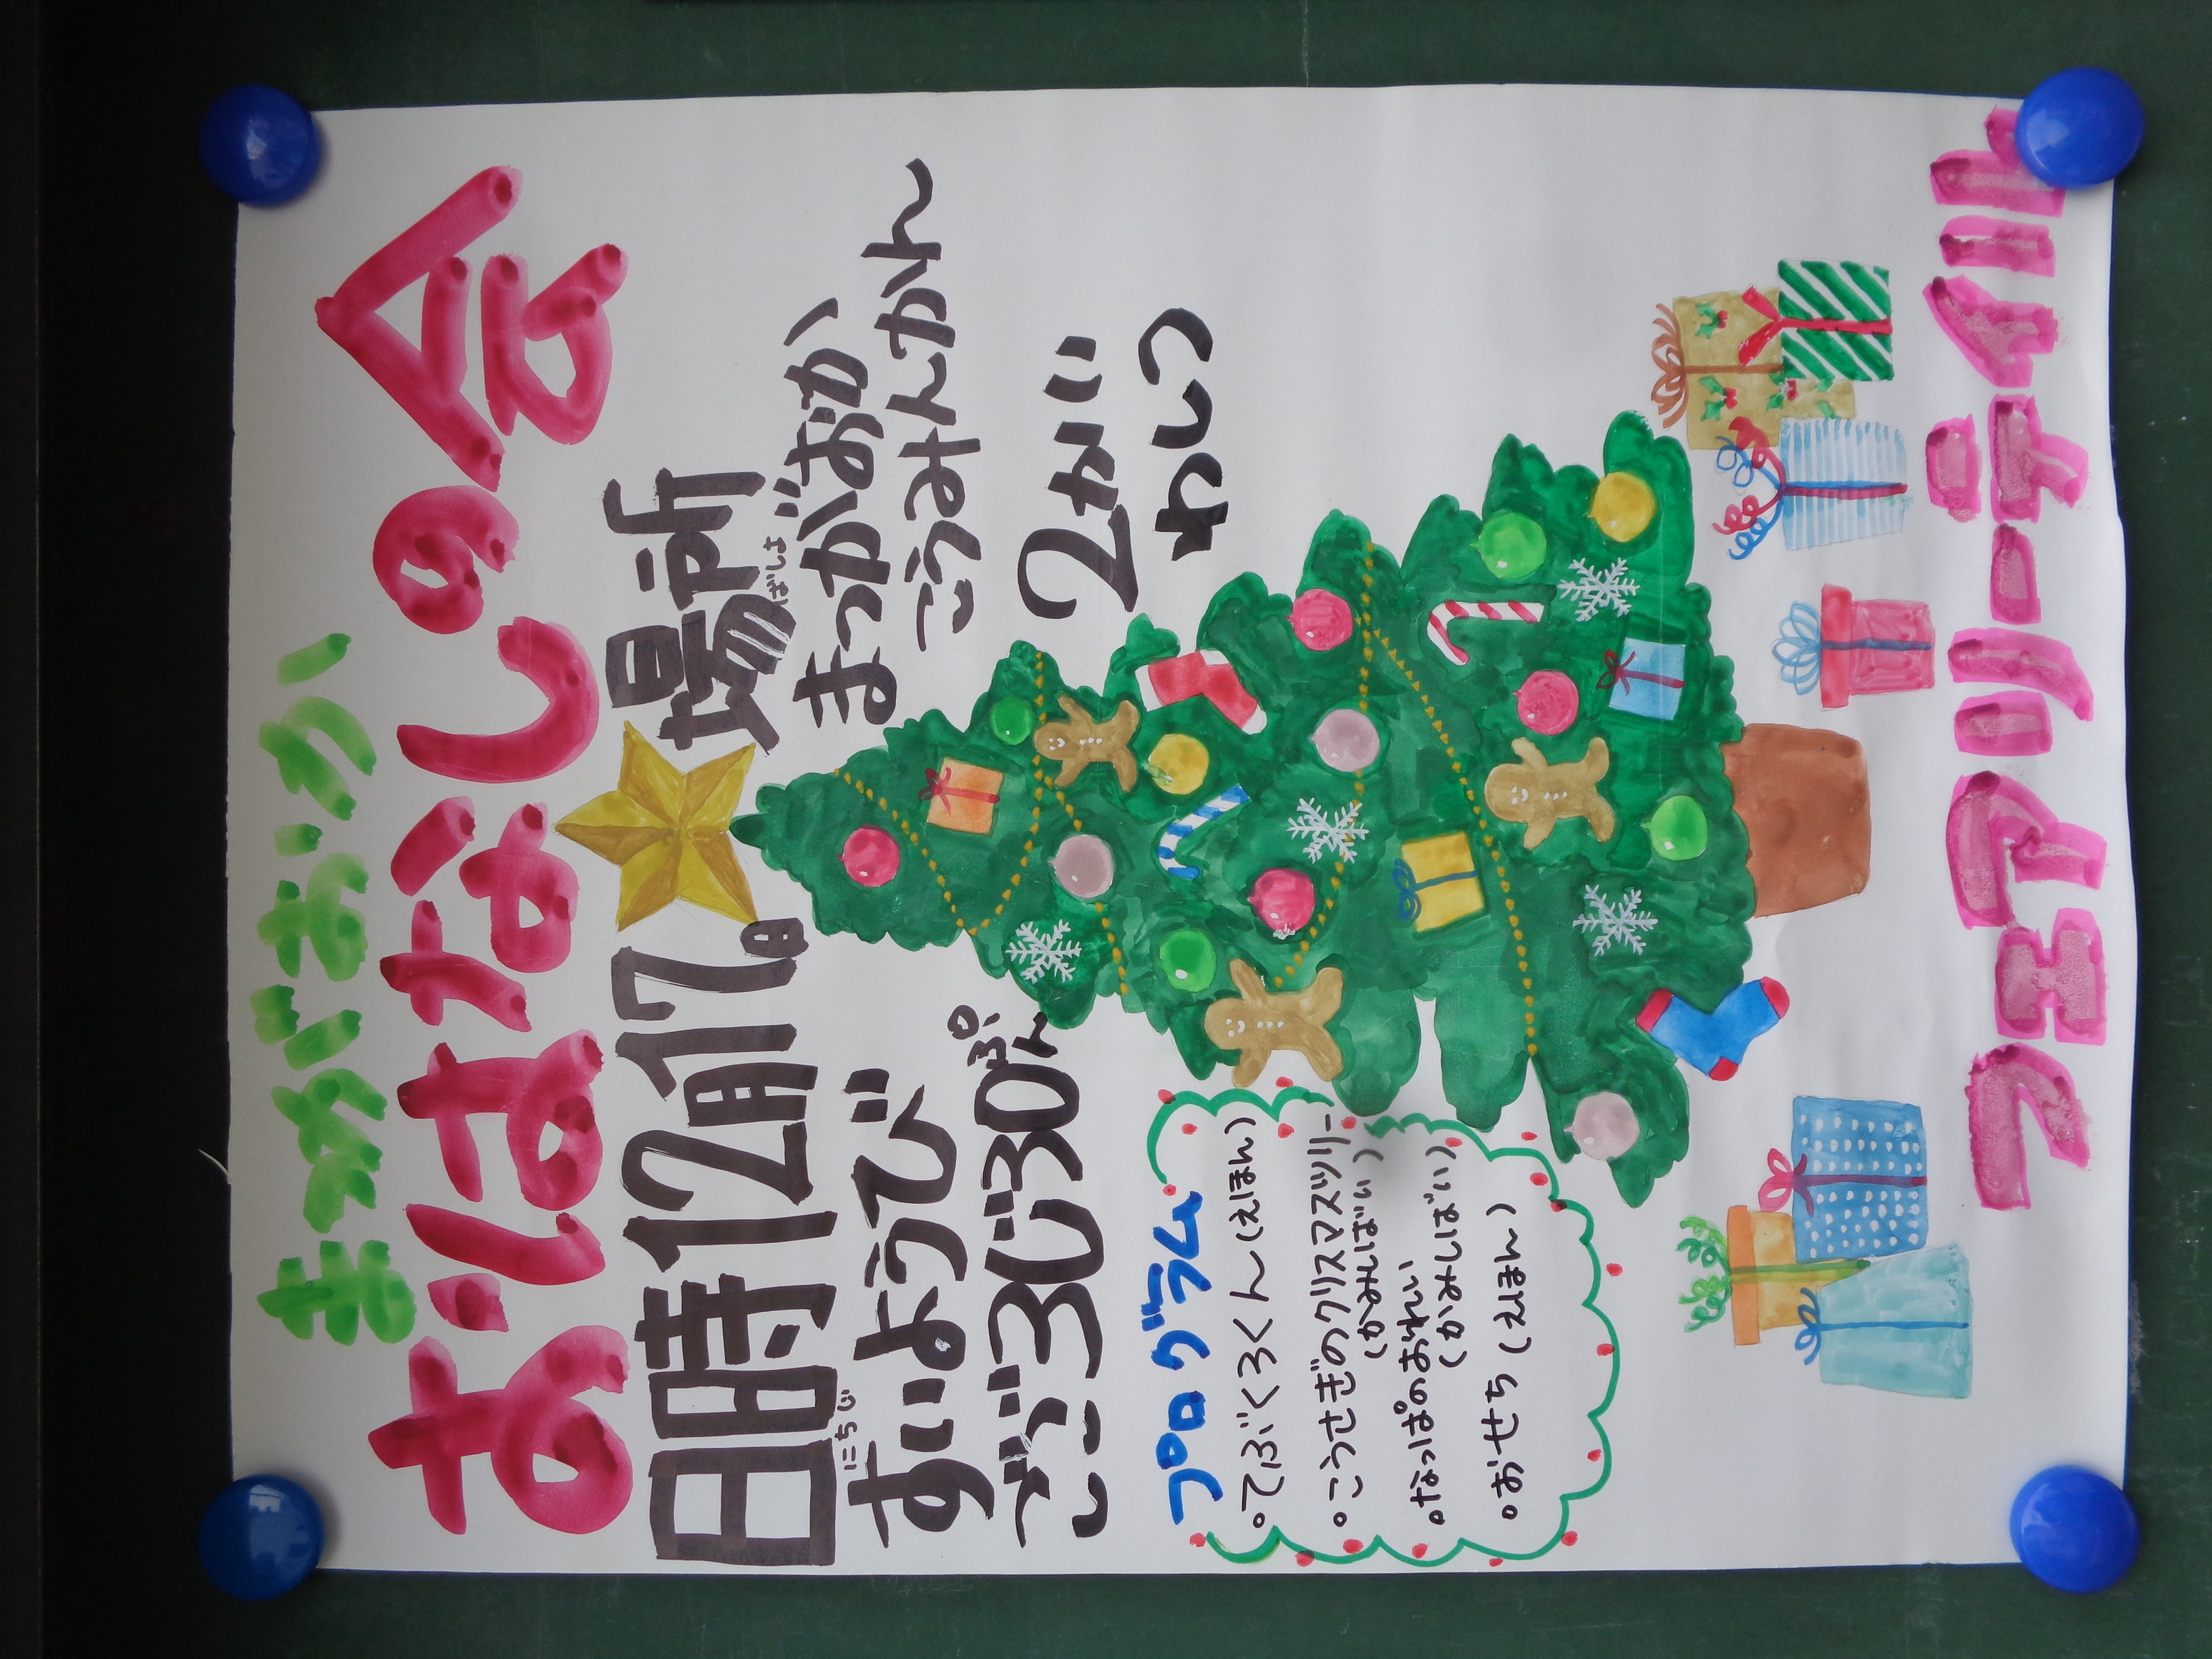 まつがおか
おはなしの会
日時12月17。
にちじ
すいようび
ごご3じ30ぷん
場所
ばしょ
まつがおか
こうみんかん
2かい
わしつ
プログラム
。てぶくろくん(えほん)
。こうさぎのクリスマスツリー
(かみしばい)
。なっぱのおれい
(かみしばい)
。おせち(えほん)
フェアリーテイルト